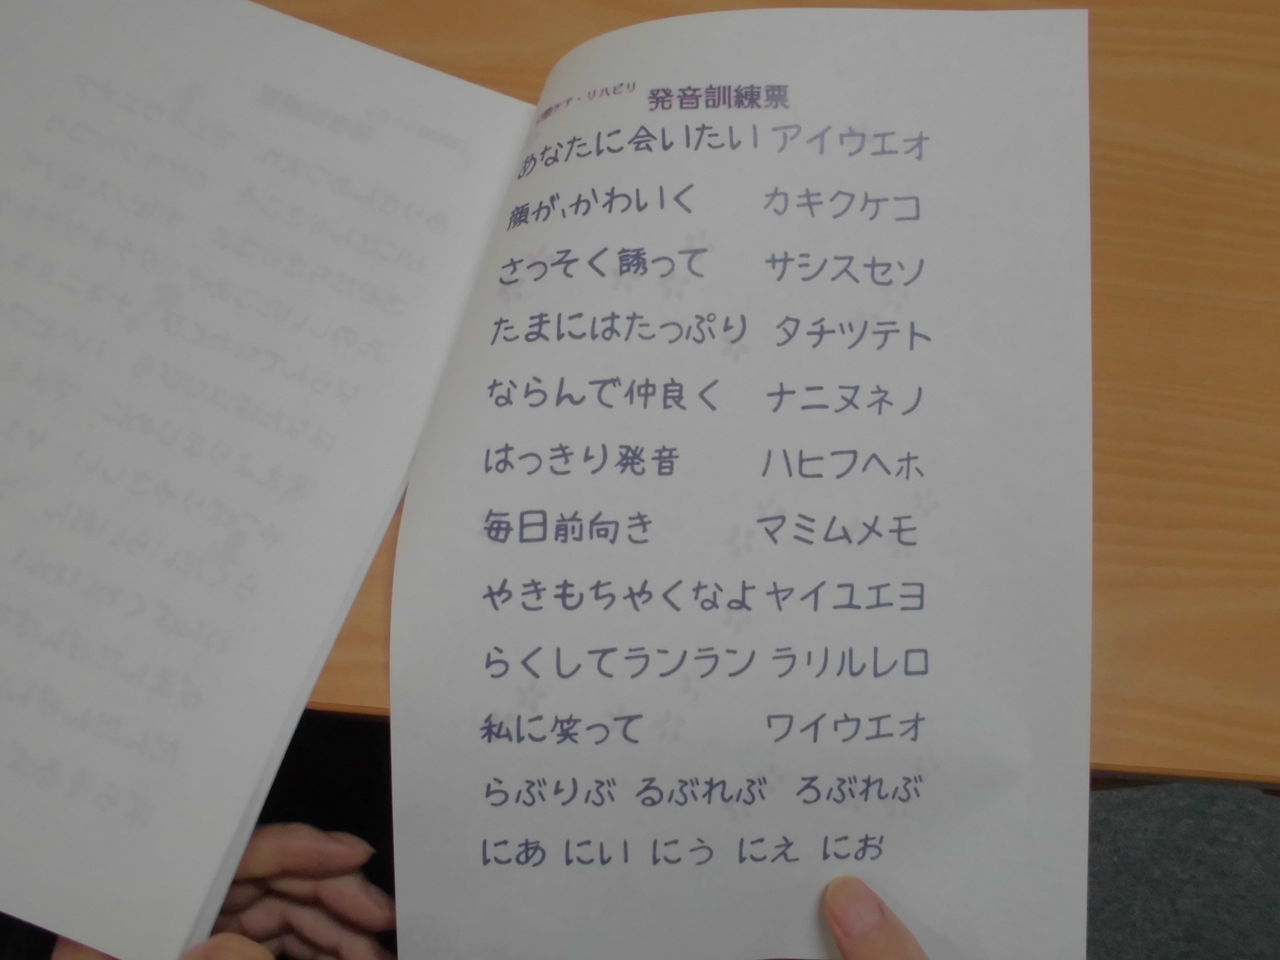 ケア・リハビリ 発音訓練票
あなたに会いたい アイウエオ
顔が、かわいく カキクケコ
さっそく誘って サシスセソ
たまにはたっぷり タチツテト
ならんで仲良く ナニヌネノ
はっきり発音 ハヒフヘホ
毎日前向き マミムメモ
やきもちやくなよ ヤイユエヨ
らくしてランラン ラリルレロ
私に笑って ワイウエオ
らぶりぶ るぶれぶ ろぶれぶ
にあ にい にぅ にぇ にお